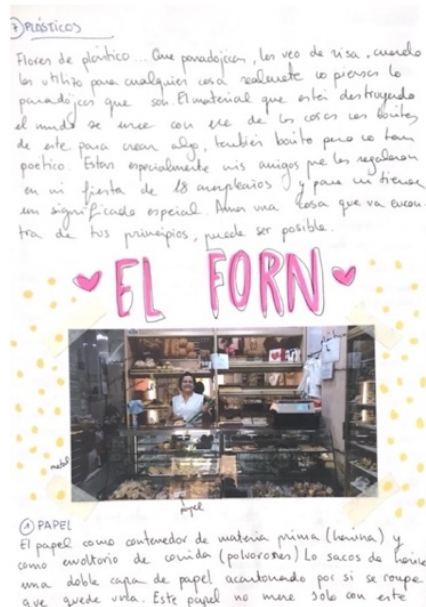 7 PLÁSTICOS
Flores de plástico... Que paradójicas, les veo de risa, cuando
las utilizo para cualquier cosa realmente no piensas lo
paradójicas que son. El material que está destruyendo
el mundo se une con una de las cosas más bonitas
de este para crear algo, también bonito pero no tan
poético. Estas especialmente mis amigos me las regalaron
en mi fiesta de 18 cumpleaños y para mi tienen
un significado especial. Amar una cosa que va encon-
tra de tus principios, puede ser posible.
EL FORN
metal
papel
1 PAPEL
El papel como contenedor de materia prima (harina) y
como envoltorio de comida (polvorones) Lo sacos de harina
una doble capa de papel acartonado por si se rompe
que quede una. Este papel no muere solo con este